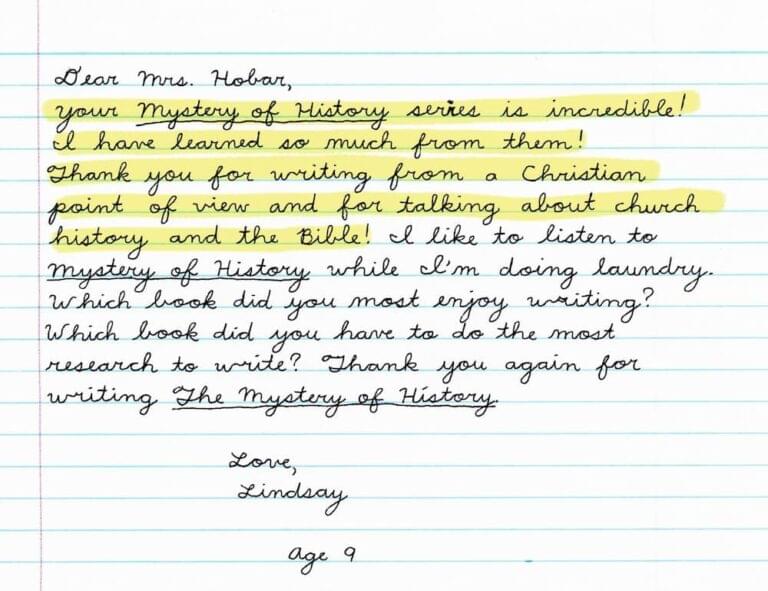 Dear Mrs. Hobar,
your Mystery of History series is incredible!
I have learned so much from them!
Thank you for writing from a Christian
point of view and for talking about church
history and the Bible! I like to listen to
Mystery of History while I'm doing laundry.
Which book did you most enjoy writing?
Which book did you have to do the most
research to write? Thank you again for
writing The Mystery of History.
Love,
Lindsay
age 9